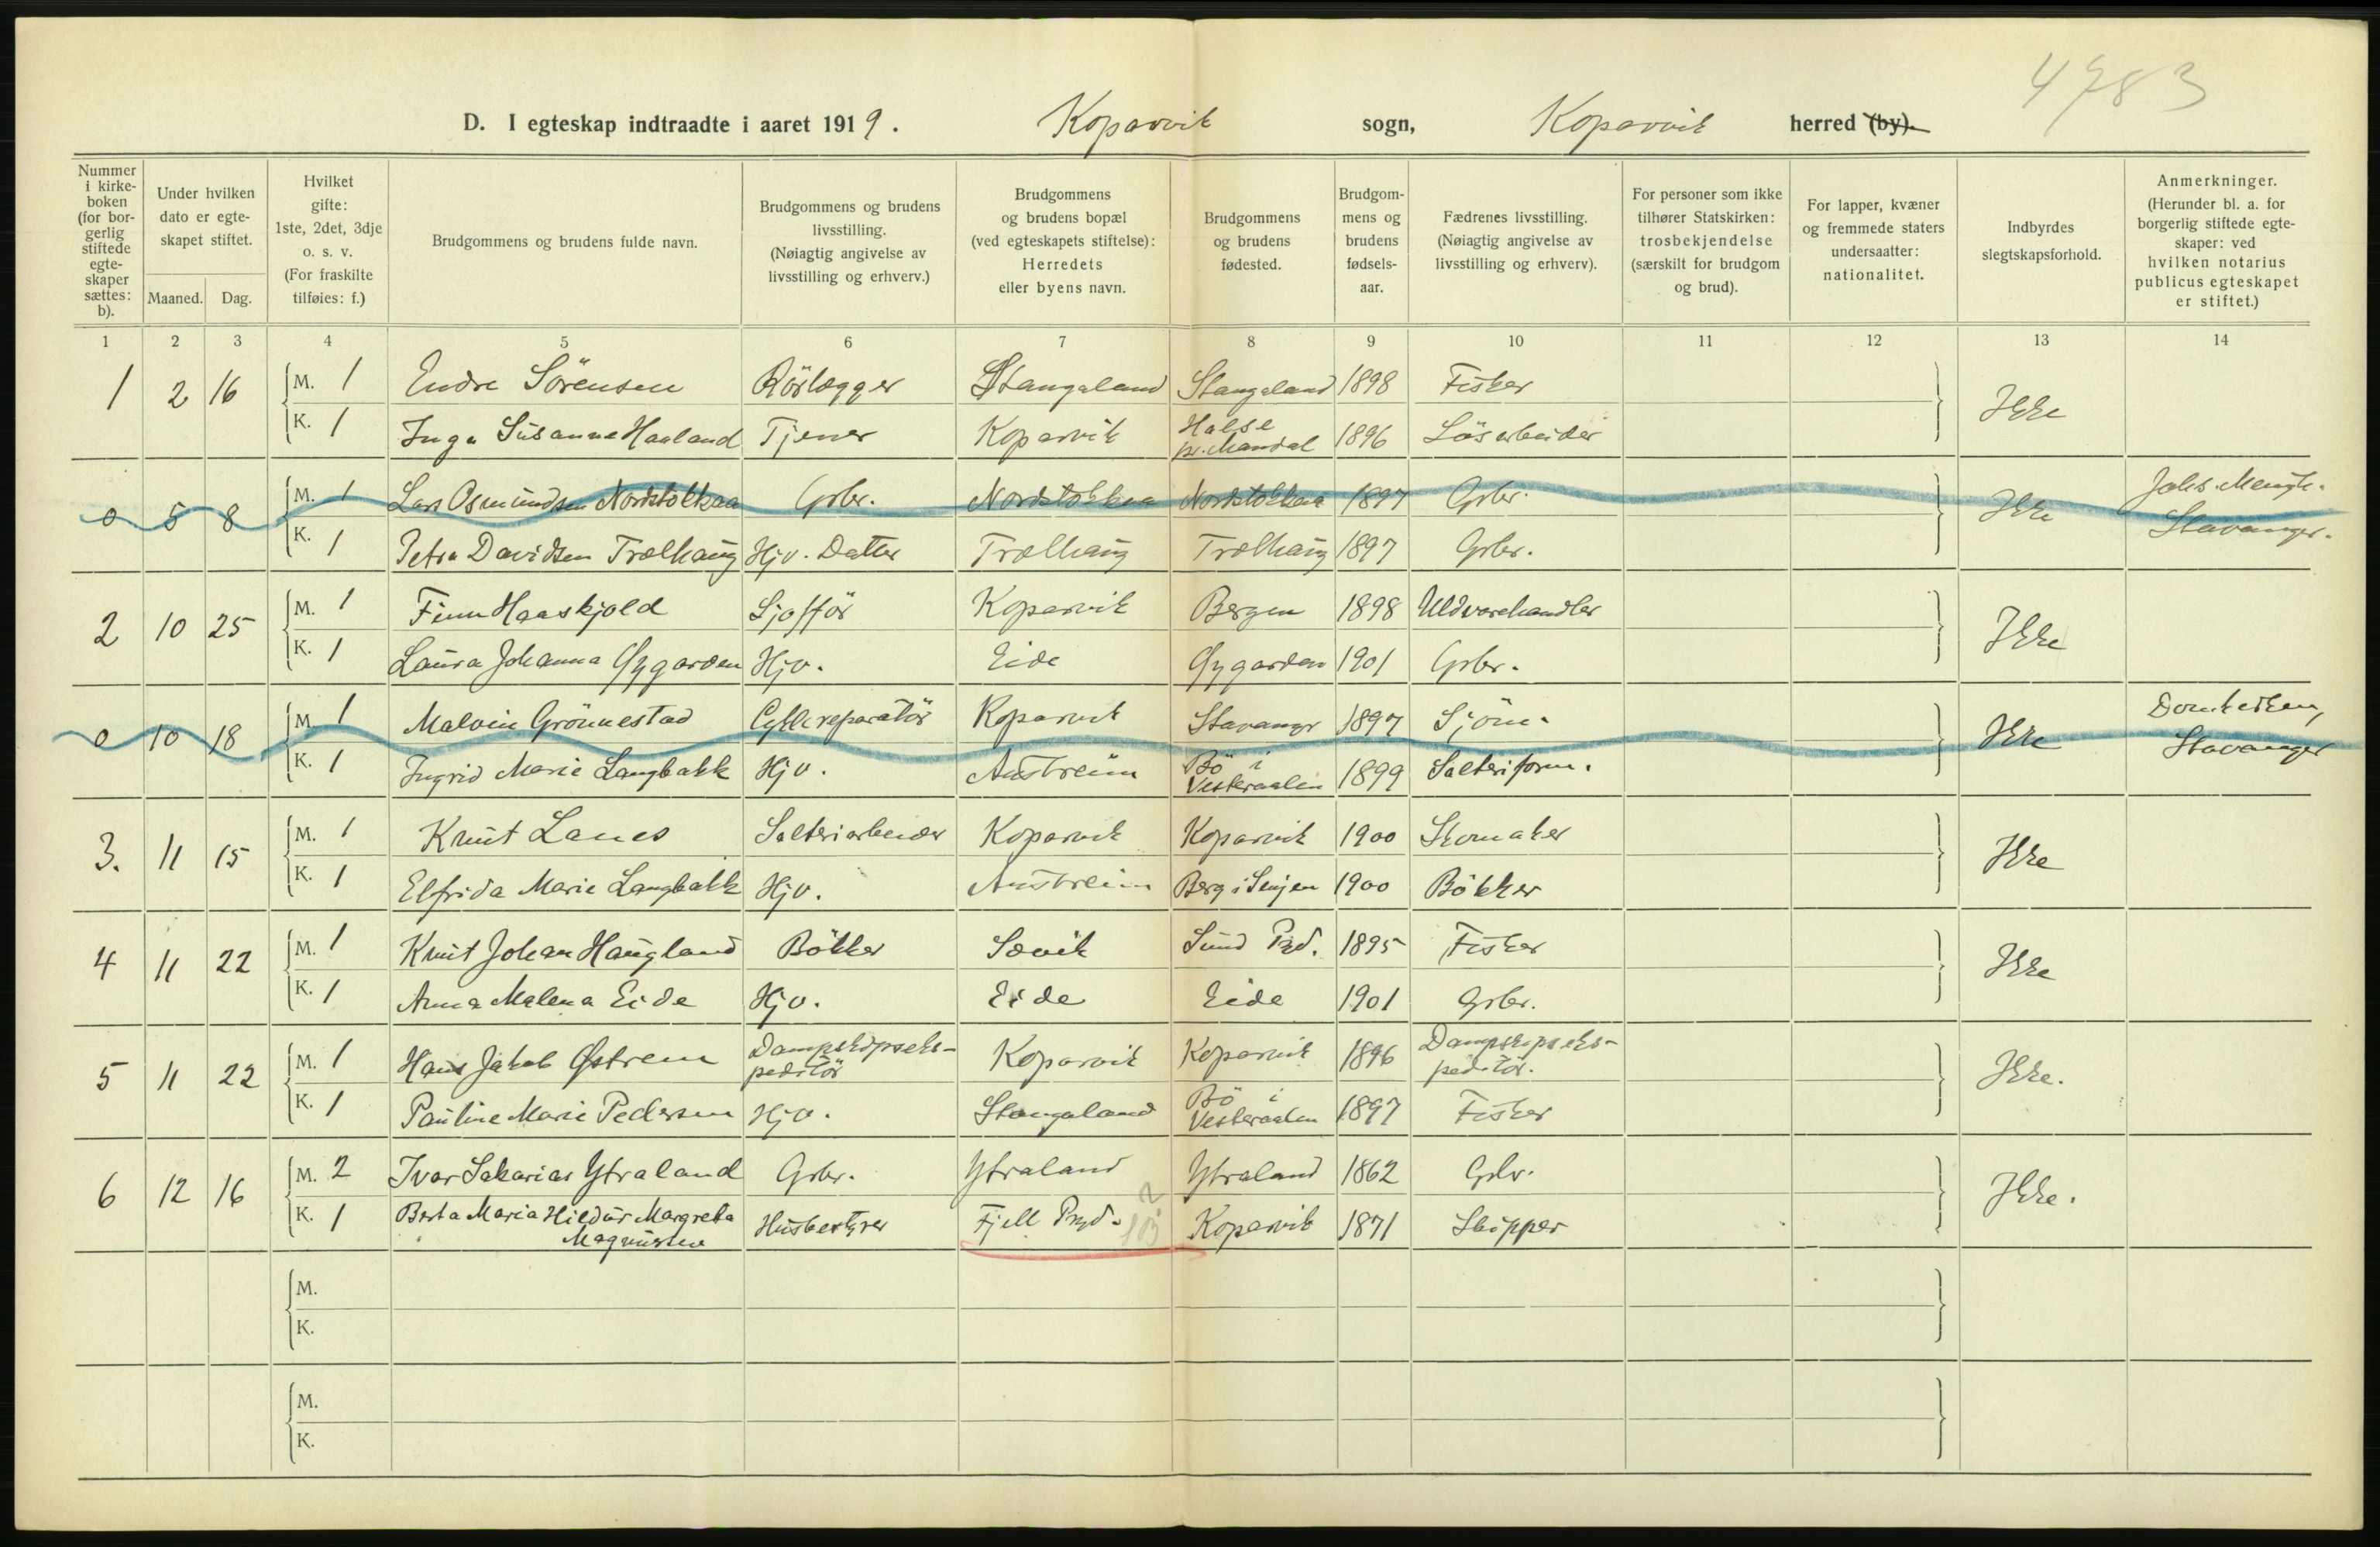 4783
D. I egteskap indtraadte i aaret 1919. Kopervik sogn, Kopervik herred (by).
Nummer i kirke-boken (for bor-gerlig stiftede egte-skaper sættes: b).
Under hvilken dato er egte-skapet stiftet.
Maaned. Dag.
Hvilket gifte: 1ste, 2det, 3dje o. s. v. (For fraskilte tilføies: f.)
Brudgommens og brudens fulde navn.
Brudgommens og brudens livsstilling. (Nøiagtig angivelse av livsstilling og erhverv.)
Brudgommens og brudens bopæl (ved egteskapets stiftelse): Herredets eller byens navn.
Brudgommens og brudens fødested.
Brudgom-mens og brudens fødsels-aar.
Fædrenes livsstilling. (Nøiagtig angivelse av livsstilling og erhverv).
For personer som ikke tilhører Statskirken: trosbekjendelse (særskilt for brudgom og brud).
For lapper, kvæner og fremmede staters undersaatter: nationalitet.
Indbyrdes slegtskapsforhold.
Anmerkninger. (Herunder bl. a. for borgerlig stiftede egte-skaper: ved hvilken notarius publicus egteskapet er stiftet.)
1 2 3 4 5 6 7 8 9 10 11 12 13 14
1 2 16 M. 1 Endre Sörensen Rörlægger Stangaland Stangaland 1898 Fisker Ikke
K. 1 Inga Susanna Haaland Tjener Kopervik Halse pr. Mandal 1896 Lösarbeider
0 5 8 M. 1 Lars Osmundsen Nordstokkaa Grbr. Nordstokkaa Nordstokkaa 1897 Grbr. Ikke Johs. Stavanger.
K. 1 Petra Davidsen Trælhaug Hjv. Datter Trælhaug Trælhaug 1897 Grbr.
2 10 25 M. 1 Finn Haaskjold Sjofför Kopervik Bergen 1898 Uldvarehandler Ikke
K. 1 Laura Johanna Øygarden Hjv. Eide Øygarden 1901 Grbr.
0 10 18 M. 1 Malvin Grönnestad Cyklereparatör Kopervik Stavanger 1897 Sjöm. Ikke Domkirken, Stavanger
K. 1 Ingrid Marie Langbakk Hjv. Austreim Bö i Vesteraalen 1899 Salteriform.
3. 11 15 M. 1 Knut Lanes Salteriarbeider Kopervik Kopervik 1900 Skomaker Ikke
K. 1 Elfrida Marie Langbakk Hjv. Austreim Berg i Senjen 1900 Bökker
4 11 22 M. 1 Knut Johan Haugland Bökker Sævik Sund Prd. 1895 Fisker Ikke
K. 1 Anna Malena Eide Hjv. Eide Eide 1901 Grbr.
5 11 22 M. 1 Hans Jakob Østrem Dampskipseks-peditör Kopervik Kopervik 1896 Dampskipseks-peditör. Ikke.
K. 1 Pauline Marie Pedersen Hjv. Stangaland Bö i Vesteraalen 1897 Fisker
6 12 16 M. 2 Ivar Sakarias Ytraland Grbr. Ytraland Ytraland 1862 Grbr. Ikke.
K. 1 Berta Maria Hildur Margreta Magnussen Husbestyrer Fjell Prgd. Kopervik 1871 Skipper
M.
K.
M.
K.